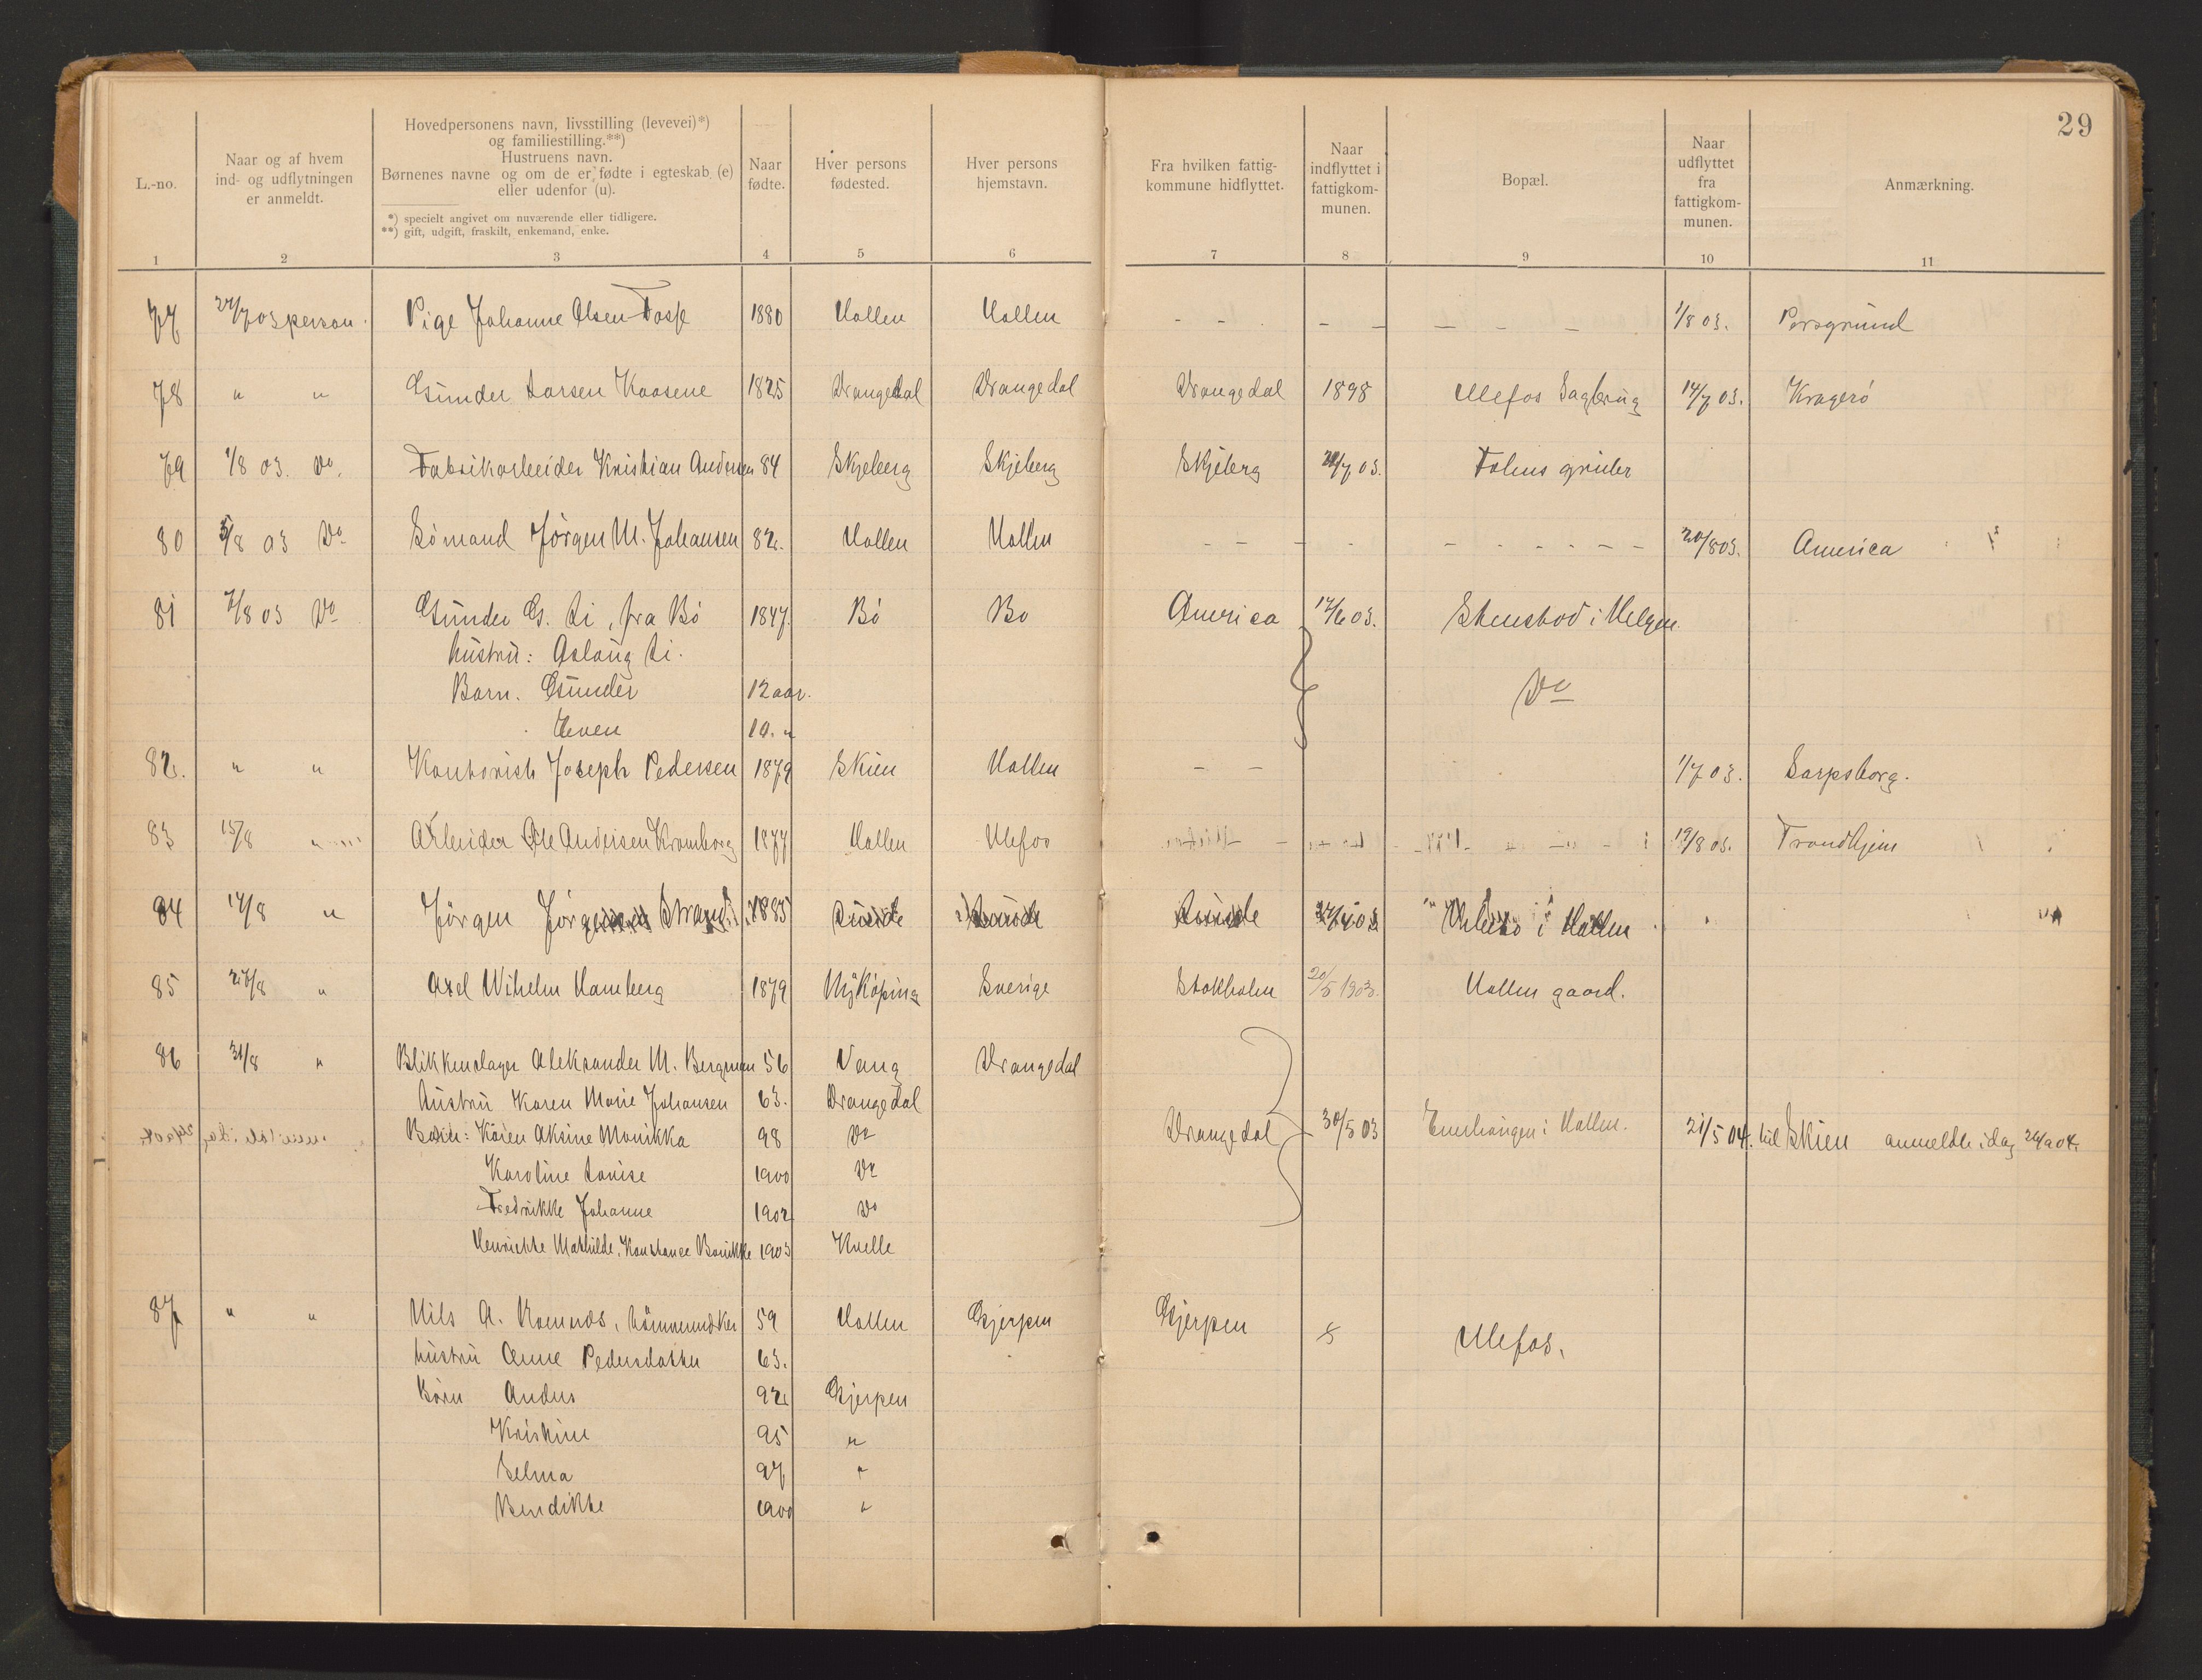 29
L.-no.
Naar og af hvem ind- og udflytningen er anmeldt.
Hovedpersonens navn, livsstilling (levevei)*) og familiestilling.**)
Hustruens navn.
Børnenes navne og om de er fødte i egteskab (e) eller udenfor (u).
*) specielt angivet om nuværende eller tidligere.
**) gift, udgift, fraskilt, enkemand, enke.
Naar fødte.
Hver persons fødested.
Hver persons hjemstavn.
Fra hvilken fattigkommune hidflyttet.
Naar indflyttet i fattigkommunen.
Bopæl.
Naar udflyttet fra fattigkommunen.
Anmærkning.
1 2 3 4 5 6 7 8 9 10 11
77 27/7 03 person. Pige Johanne Olsen Fosse 1880 Hollen Hollen - - - - - - - 1/8 03. Porsgrund
78 " " Gunder Larsen Kaasene 1825 Drangedal Drangedal Drangedal 1898 Ulefos Sagbrug 14/7 03. Kragerö
79 1/8 03. Do. Fabrikarbeider Kristian Andersen 84 Skjeberg Skjeberg Skjeberg 7 03. Fehns gruber
80 5/8 03 Do Sömand Jörgen M. Johansen 82. Hollen Hollen - - - - - - - - - - 20/8 03. America
81 7/8 03 Do Gunder G. Li, fra Bö 1847. Bö Bö America 17/6 03. Stenstod i Helgen
hustru: Aslaug Li.
Barn. Gunder 12 aar. Do
Even 10. "
82. " " Kontorist Joseph Pedersen 1879 Skien Hollen - - 1/7 03. Sarpsborg.
83 15/8 " Arbeider Ole Andersen Kromborg 1877 Hollen Ulefos 19/8 03. Trondhjem
84 14/8 " Jörgen Strand 1885 i Hollen
85 27/8 " Axel Wihelm Hamberg 1879 Nyköping Sverige Stokholm 20/5 1903. Hollen gaard.
86 31/8 " Blikkenslager Aleksander M. Bergman 56 Vang Drangedal
Hustru Karen Marie Johansen 63. Drangedal
Börn: Karen Aksine Monikka 98 Do Drangedal 30/5 03 i Hollen. 21/5 04. til Skien anmeldt idag 04.
Karoline Lovise 1900 Do
Fredrikke Johanne 1902 Do
Henriette Mathilde, Konstance 1903 Kvelle
87 " " Nils A. Romnæs, tömmermdker 59 Hollen Gjerpen Gjerpen Ulefos.
hustru Anne Pedersdatter 63.
Börn Anders 92 Gjerpen
Kristine 95 "
Selma 97 "
Bendikte 1900 "